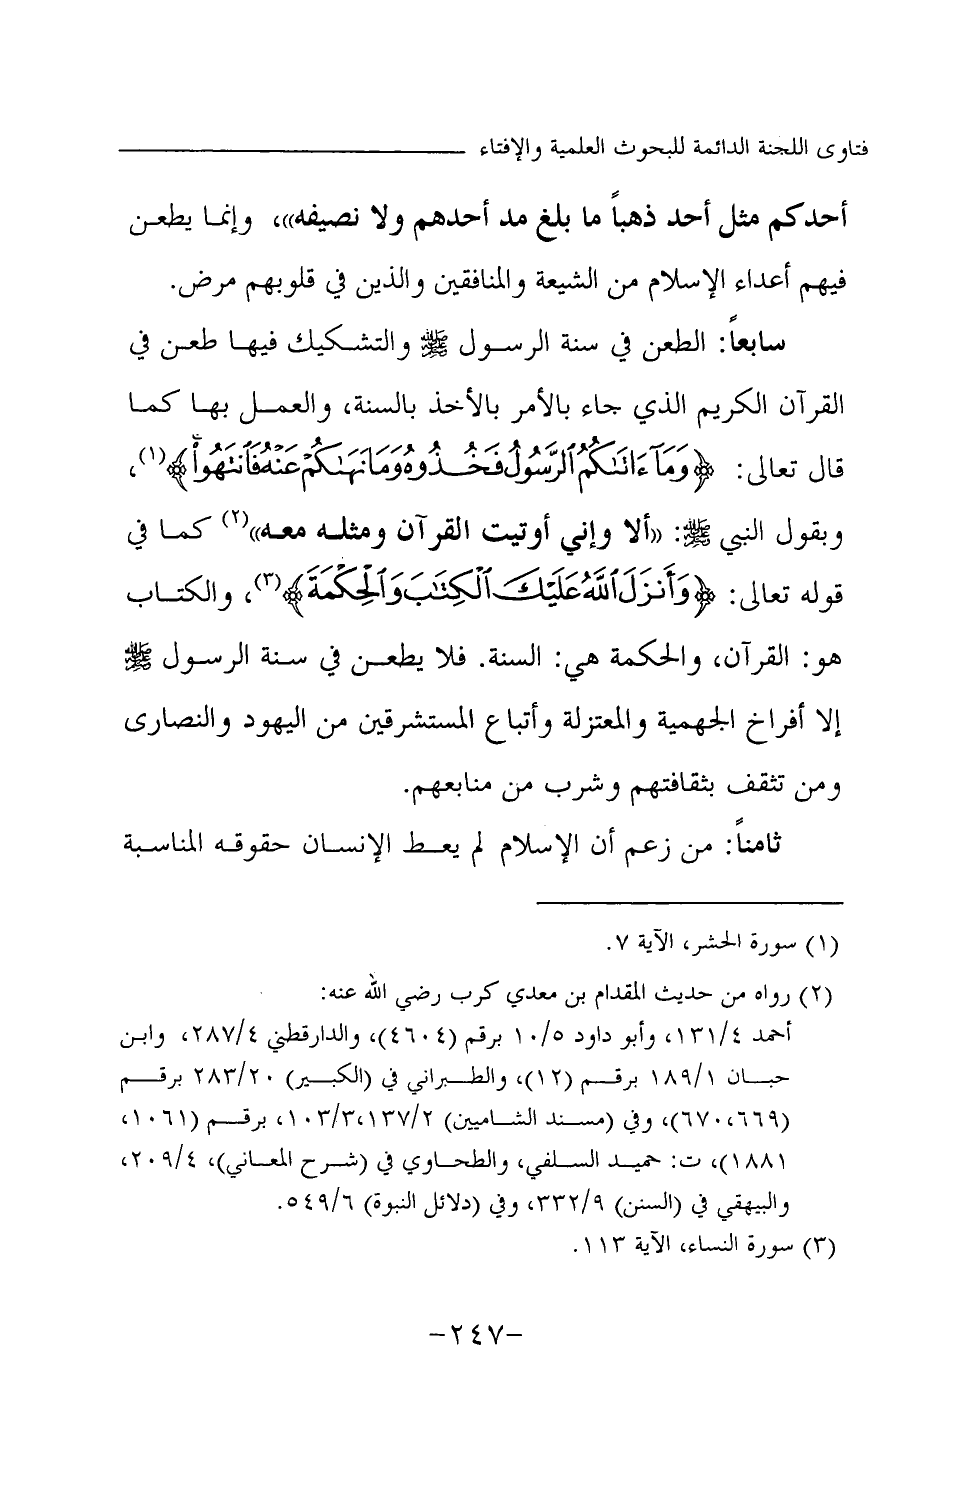 فتاوى اللجنة الدائمة للبحوث العلمية والإفتاء
أحدكم مثل أحد ذهباً ما بلغ مد أحدهم ولا نصيفه»، وإنما يطعن
فيهم أعداء الإسلام من الشيعة والمنافقين والذين في قلوبهم مرض.
سابعاً: الطعن في سنة الرسول ﷺ والتشكيك فيها طعن في
القرآن الكريم الذي جاء بالأمر بالأخذ بالسنة، والعمل بها كما
قال تعالى: ﴿وَمَآ ءَاتَىٰكُمُ ٱلرَّسُولُ فَخُذُوهُ وَمَا نَهَىٰكُمْ عَنْهُ فَٱنتَهُوا۟ۚ﴾(١)،
وبقول النبي ﷺ: «ألا وإني أوتيت القرآن ومثله معه»(٢) كما في
قوله تعالى: ﴿وَأَنزَلَ ٱللَّهُ عَلَيْكَ ٱلْكِتَٰبَ وَٱلْحِكْمَةَ﴾(٣)، والكتاب
هو: القرآن، والحكمة هي: السنة. فلا يطعن في سنة الرسول ﷺ
إلا أفراخ الجهمية والمعتزلة وأتباع المستشرقين من اليهود والنصارى
ومن تثقف بثقافتهم وشرب من منابعهم.
ثامناً: من زعم أن الإسلام لم يعط الإنسان حقوقه المناسبة
(١) سورة الحشر، الآية ٧.
(٢) رواه من حديث المقدام بن معدي كرب رضي الله عنه:
أحمد ١٣١/٤، وأبو داود ١٠/٥ برقم (٤٦٠٤)، والدارقطني ٢٨٧/٤، وابن
حبان ١٨٩/١ برقم (١٢)، والطبراني في (الكبير) ٢٨٣/٢٠ برقم
(٦٦٩، ٦٧٠)، وفي (مسند الشاميين) ١٣٧/٢، ١٠٣/٣، برقم (١٠٦١،
١٨٨١)، ت: حميد السلفي، والطحاوي في (شرح المعاني)، ٢٠٩/٤،
والبيهقي في (السنن) ٣٣٢/٩، وفي (دلائل النبوة) ٥٤٩/٦.
(٣) سورة النساء، الآية ١١٣.
-٢٤٧-